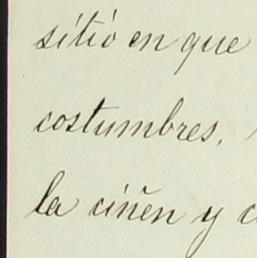 sitió en que
costumbres.
la ciñen y